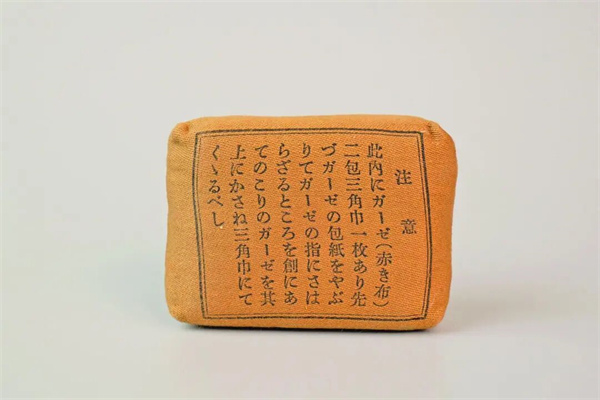 注意
此内にガーゼ(赤き布)
二包三角巾一枚あり先
づガーゼの包紙をやぶ
りてガーゼの指にさは
らざるところを創にあ
てのこりのガーゼを其
上にかさね三角巾にて
くゝるべし